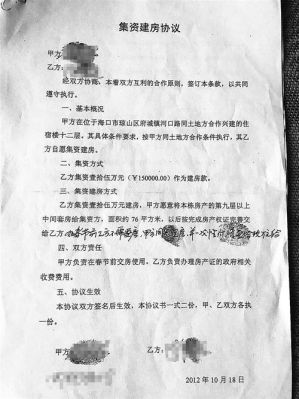 集资建房协议
甲方
乙方:
经双方协商，本着双方互利的合作原则，签订本条款，以共同
遵守执行。
一、基本概况
甲方在位于海口市琼山区府城镇河口路同土地方合作兴建的住
宿楼十二层，其具体条件要求，按甲方同土地方合作条件执行，其乙
方自愿集资建房。
二、集资方式
乙方集资壹拾伍万元（￥150000.00）作为建房款。
三、集资建房方式
乙方集资壹拾伍万元，甲方愿意将本栋房产的第九层以上
中间套房给集资方，面积约 76 平方米，以后按完成房产权证完善交
给乙方
四、双方责任
甲方负责在春节前交房使用，乙方负责办理房产证的政府相关
收费费用。
五、协议生效
本协议双方签名后生效，本协议书一式二份，甲、乙双方各执
一份。
甲方
乙方:
2012 年 10 月 18 日